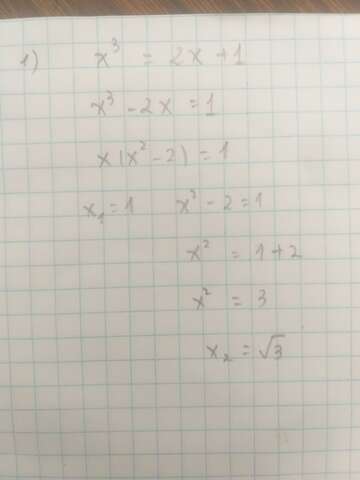 1) x³ = 2x + 1
x³ - 2x = 1
x(x² - 2) = 1
x₁ = 1 x² - 2 = 1
x² = 1 + 2
x² = 3
x₂ = √3